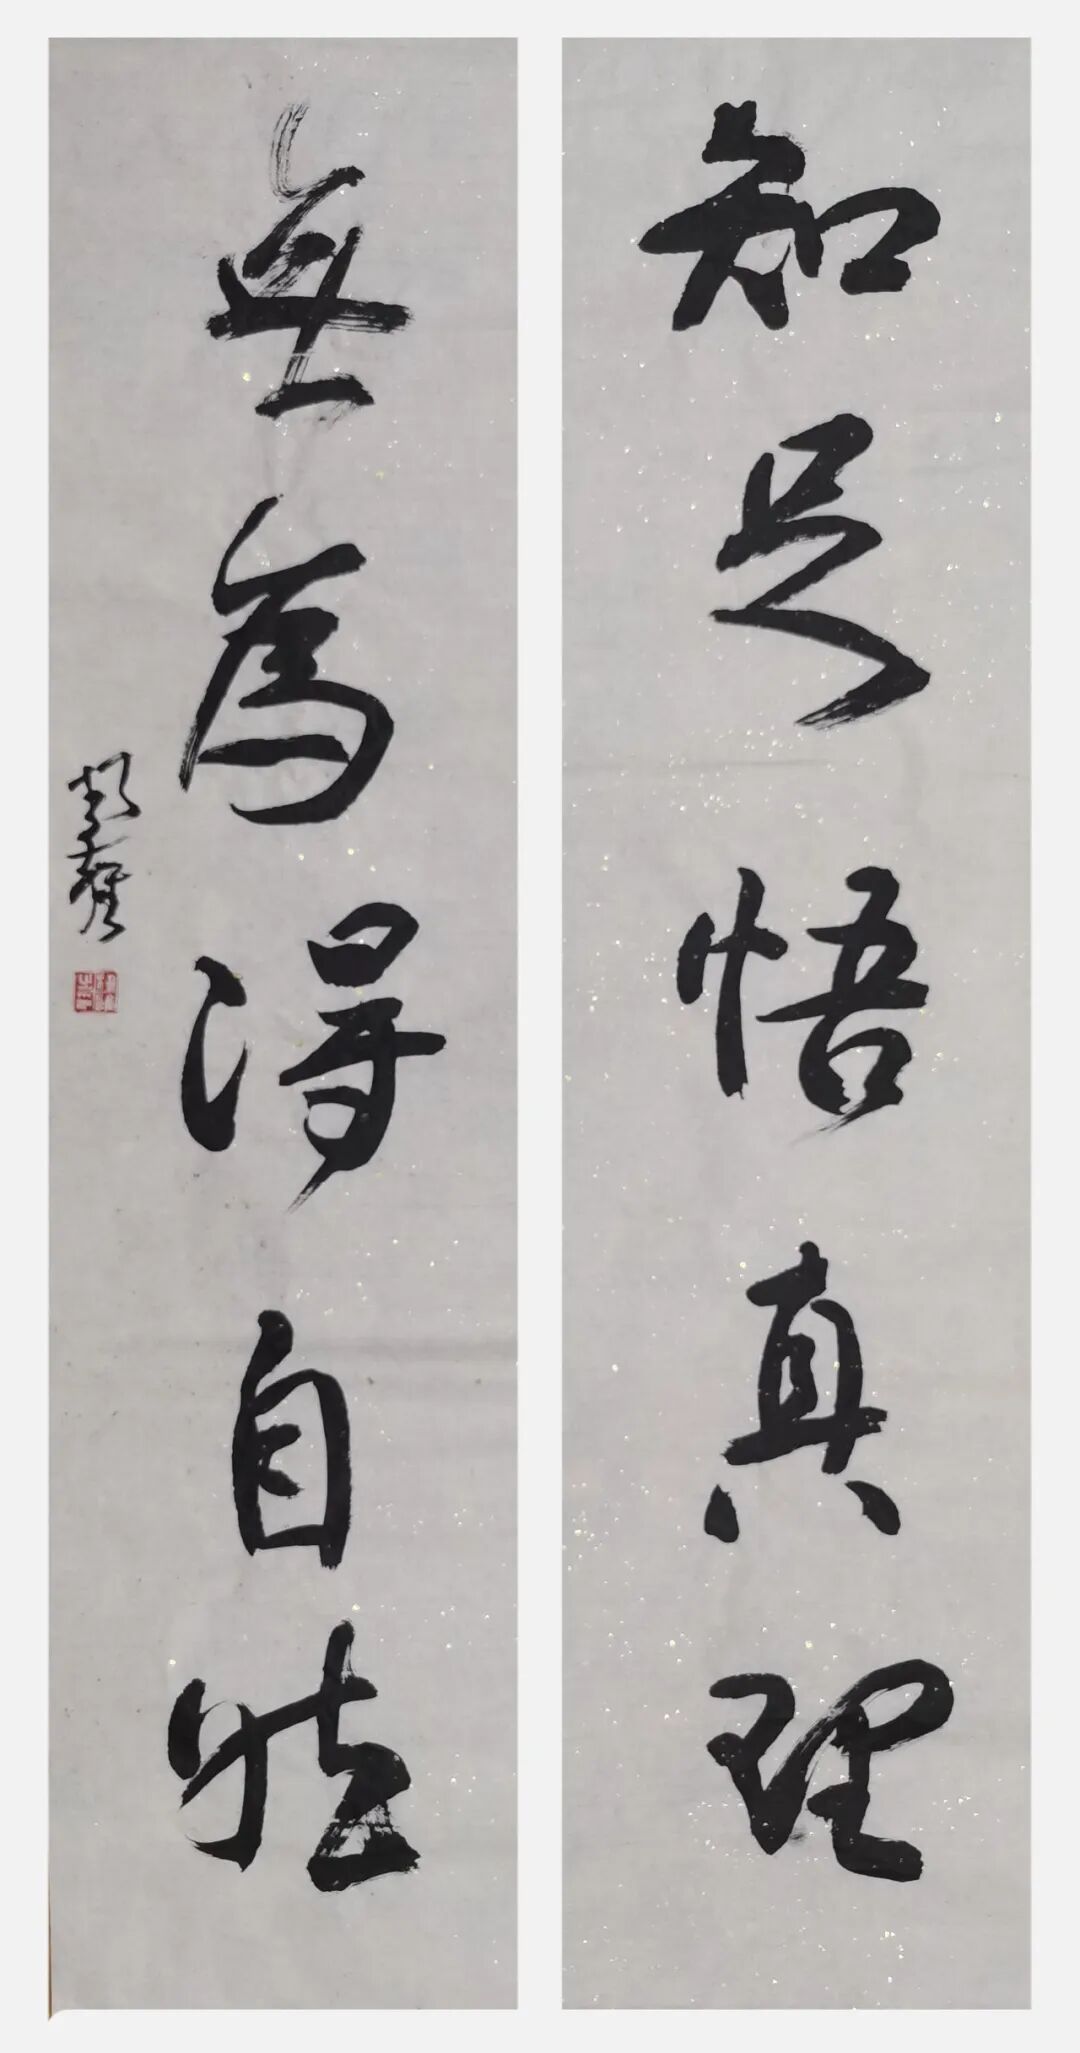 知足悟真理
無為得自然